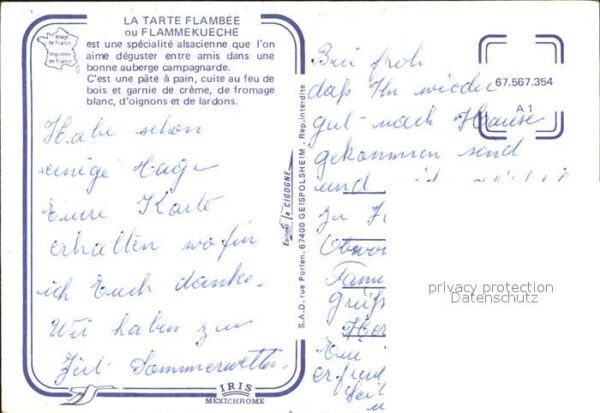 LA TARTE FLAMBÉE
ou FLAMMEKUECHE
est une spécialité alsacienne que l'on
aime déguster entre amis dans une
bonne auberge campagnarde.
C'est une pâte à pain, cuite au feu de
bois et garnie de crême, de fromage
blanc, d'oignons et de lardons.
Image
de France
Imprimée
en France
Habe schon
einige Tage
Eure Karte
erhalten wofür
ich Euch danke.
Wir haben zur
Zeit Sommerwetter.
IRIS
MEXICHROME
Editions la CIGOGNE
S.A.D. rue Forlen. 67400 GEISPOLSHEIM . Rep.interdite
67.567.354
A 1
Bin froh
daß Ihr wieder
gut nach Hause
gekommen seid
und
zu
Fami
Grüß
Her
erfreu
privacy protection
Datenschutz